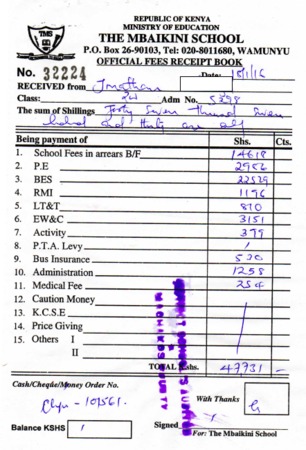 REPUBLIC OF KENYA
MINISTRY OF EDUCATION
THE MBAIKINI SCHOOL
P.O. Box 26-90103, Tel: 020-8011680, WAMUNYU
OFFICIAL FEES RECEIPT BOOK
No. 32224 Date: 15/1/16
RECEIVED from Jonathan
Class: 2W Adm No. 5298
The sum of Shillings Forty Seven thousand Seven
Being payment of Shs. Cts.
1. School Fees in arrears B/F 14618
2. P.E 2956
3. BES 22529
4. RMI 1196
5. LT&T 810
6. EW&C 3151
7. Activity 399
8. P.T.A. Levy /
9. Bus Insurance 530
10. Administration 1258
11. Medical Fee 254
12. Caution Money
13. K.C.S.E
14. Price Giving
15. Others I
II
TOTAL Kshs. 47731 -
Cash/Cheque/Money Order No.
101561. With Thanks
Signed
Balance KSHS /
For: The Mbaikini School